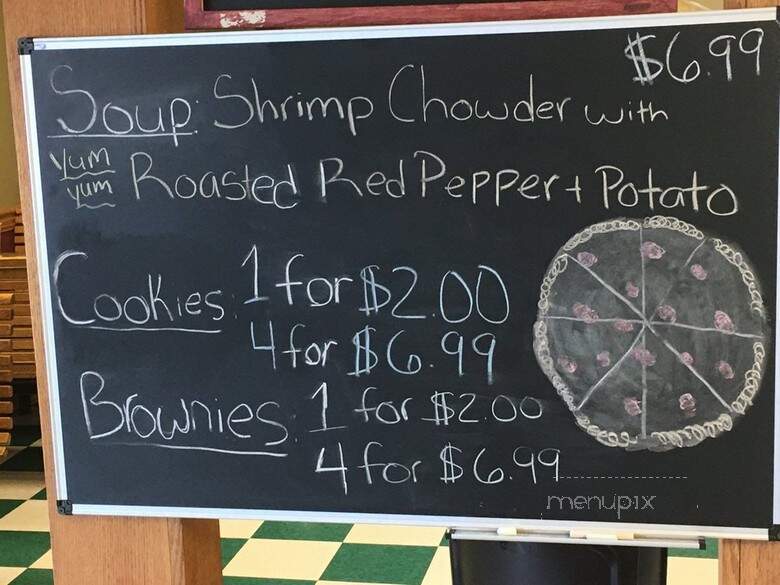 $6.99
Soup: Shrimp Chowder with
Yum yum Roasted Red Pepper + Potato
Cookies: 1 for $2.00
4 for $6.99
Brownies: 1 for $2.00
4 for $6.99
menupix